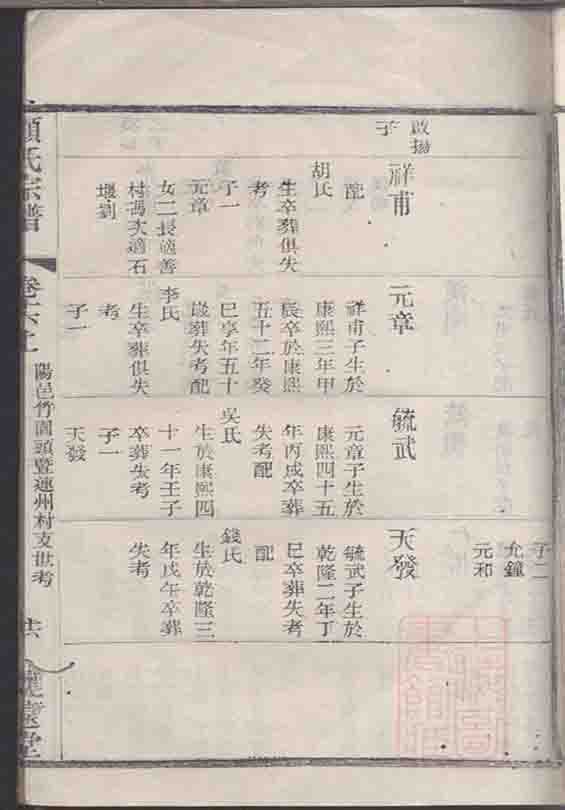 啟揚
子
祥甫
配
胡氏
生卒葬俱失
考
子一
元章
女二長適善
村馮次適石
堰劉
元章
祥甫子生於
康熙三年甲
辰卒於康熙
五十二年癸
巳享年五十
歲葬失考配
李氏
生卒葬俱失
考
子一
毓武
元章子生於
康熙四十五
年丙戌卒葬
失考配
吳氏
生於康熙四
十一年壬子
卒葬失考
子一
天發
子二
允鐘
元和
天發
毓武子生於
乾隆二年丁
巳卒葬失考
配
錢氏
生於乾隆三
年戊午卒葬
失考
氏宗譜
卷六上
陽邑竹園頭暨連州村支世考
堂